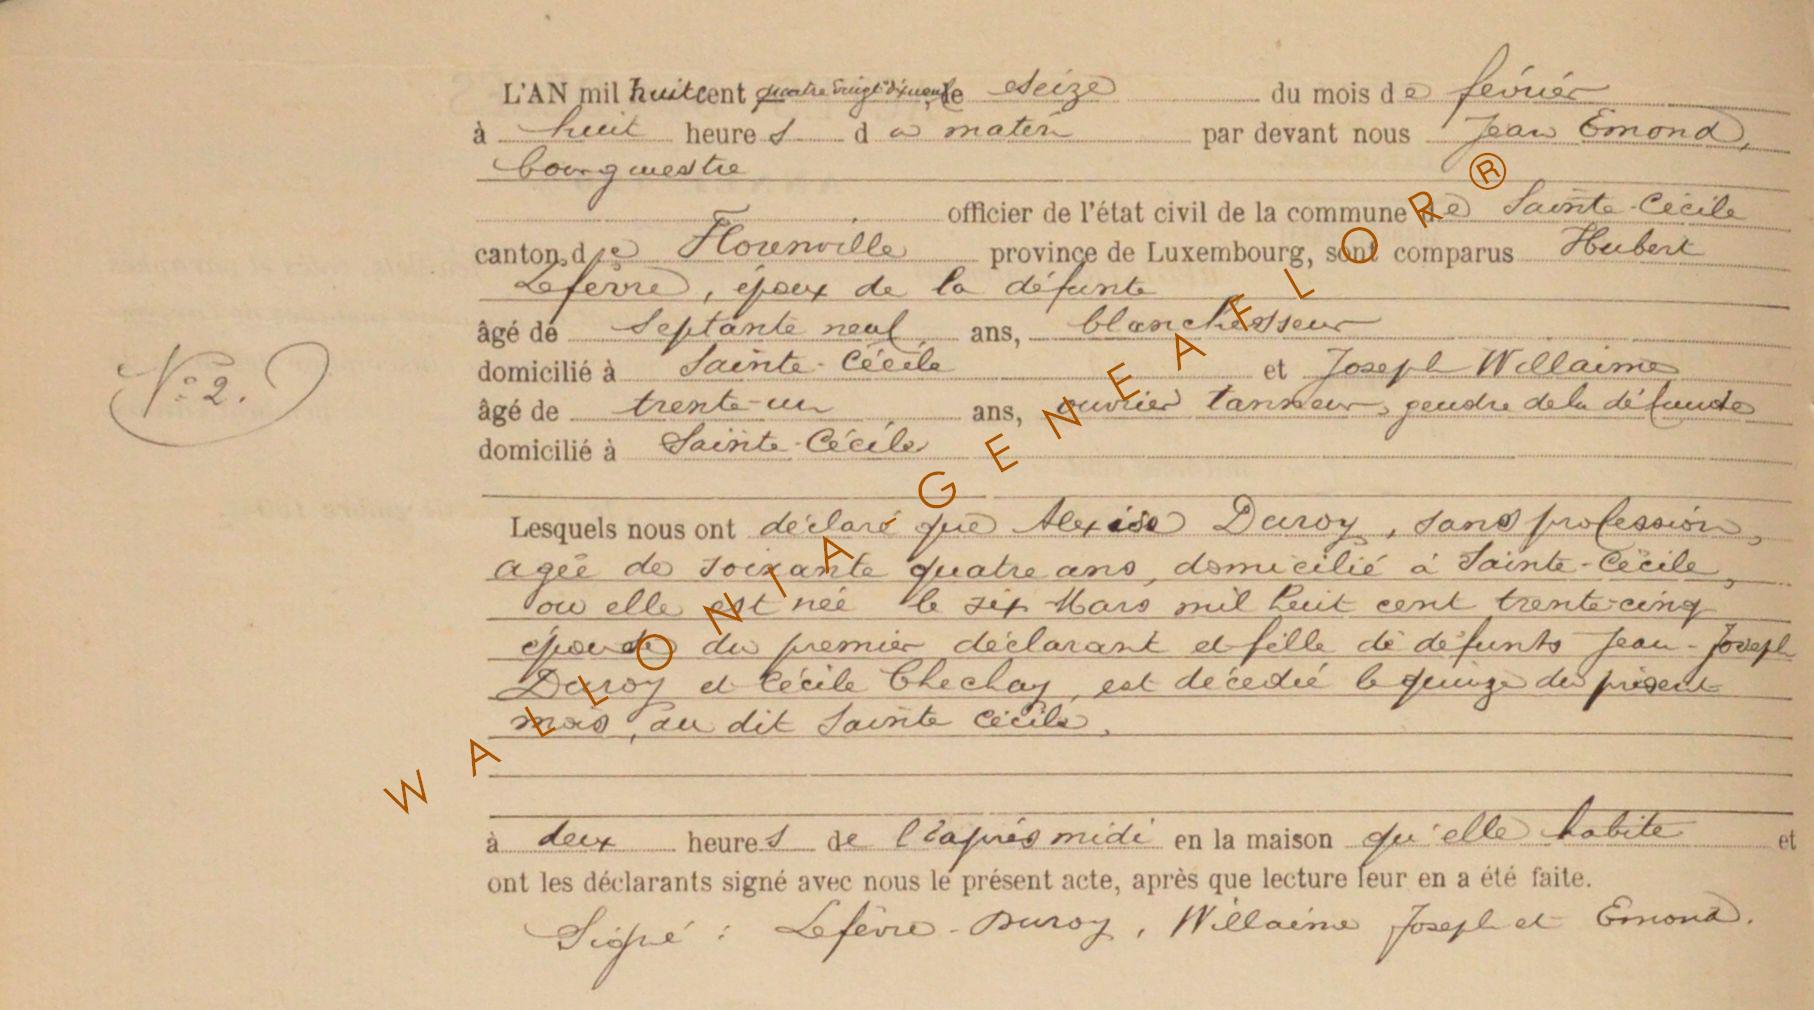 L'AN mil huit cent quatre vingt dix neuf le seize du mois de février
à huit heures du matin par devant nous Jean Emond,
bourgmestre
officier de l'état civil de la commune de Sainte-Cécile
canton de Florenville province de Luxembourg, sont comparus Hubert
Lefèvre, époux de la défunte
âgé de septante neuf ans, blanchisseur
domicilié à Sainte-Cécile et Joseph Willaime
âgé de trente-un ans, ouvrier tanneur, gendre de la défunte
domicilié à Sainte-Cécile
No 2.
Lesquels nous ont déclaré que Alexise Duroy, sans profession,
agée de soixante quatre ans, domicilié à Sainte-Cécile,
ou elle est née le six Mars mil huit cent trente-cinq
épouse du premier déclarant et fille de défunts Jean-Joseph
Duroy et Cécile est décédé le quinze du présent
mois, au dit Sainte Cécile,
à deux heures de l'après midi en la maison qu'elle habite et
ont les déclarants signé avec nous le présent acte, après que lecture leur en a été faite.
Signé : Lefèvre-Duroy, Willaime Joseph et Emond.
WALLONIA GENEAFLOR®